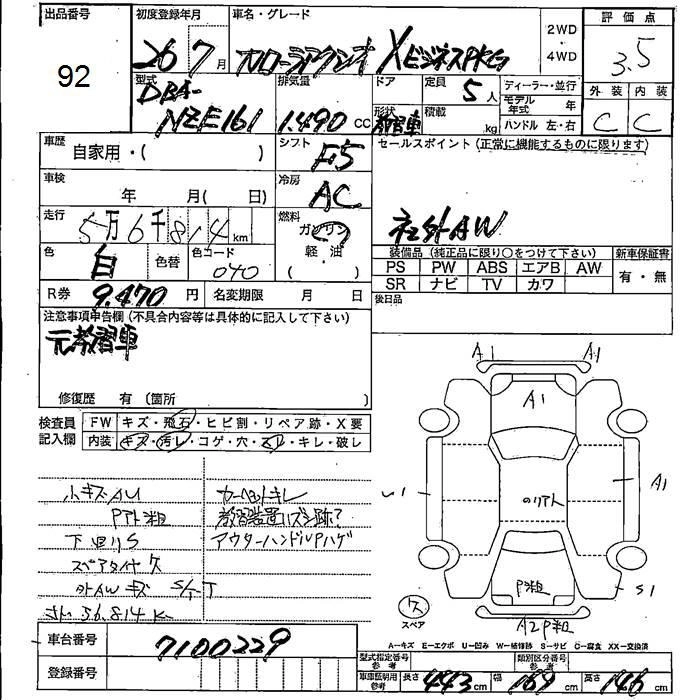 出品番号
92
初度登録年月
26 7月
車名・グレード
カローラアクシオ XビジネスPKG
2WD
・
4WD
評価点
3.5
外装 内装
C C
型式
DBA-
NZE161
排気量
1.490 CC
ドア
形状
教習車
定員
5人
積載
kg
ディーラー・並行
モデル年式 年
ハンドル 左・右
車歴
自家用・( )
シフト
F5
セールスポイント (正常に機能するものに限ります)
社外AW
車検
年 月( 日)
冷房
AC
走行
5万6千814km
燃料
ガソリン
・
軽・油
色
白
色替
色コード
040
装備品(純正品に限り○をつけて下さい)
PS PW ABS エアB AW
SR ナビ TV カワ
新車保証書
有・無
R券 9.470円
名変期限 月 日
後日品
注意事項申告欄(不具合内容等は具体的に記入して下さい)
元教習車
修復歴 有 (箇所 )
検査員
記入欄
FW キズ・飛石・ヒビ割・リペア跡・X要
内装 キズ・汚レ・コゲ・穴・スレ・キレ・破レ
小キズ・AU
Pアト粗
下回りS
スペアタイヤ欠
外AWキズ S/T
カーペットキレ
教習装置ハズシ跡?
アウターハンドルPハゲ
A1 A1
A1
U1
のりアト
A1
P粗
S1
欠
スペア
A2P粗
車台番号
7100229
登録番号
A−キズ E−エクボ U−凹み W−補修跡 S−サビ C−腐食 XX−交換済
型式指定番号
参考
類別区分番号
参考
車庫証明用
参考
長さ 443cm 幅 169cm 高さ 146cm